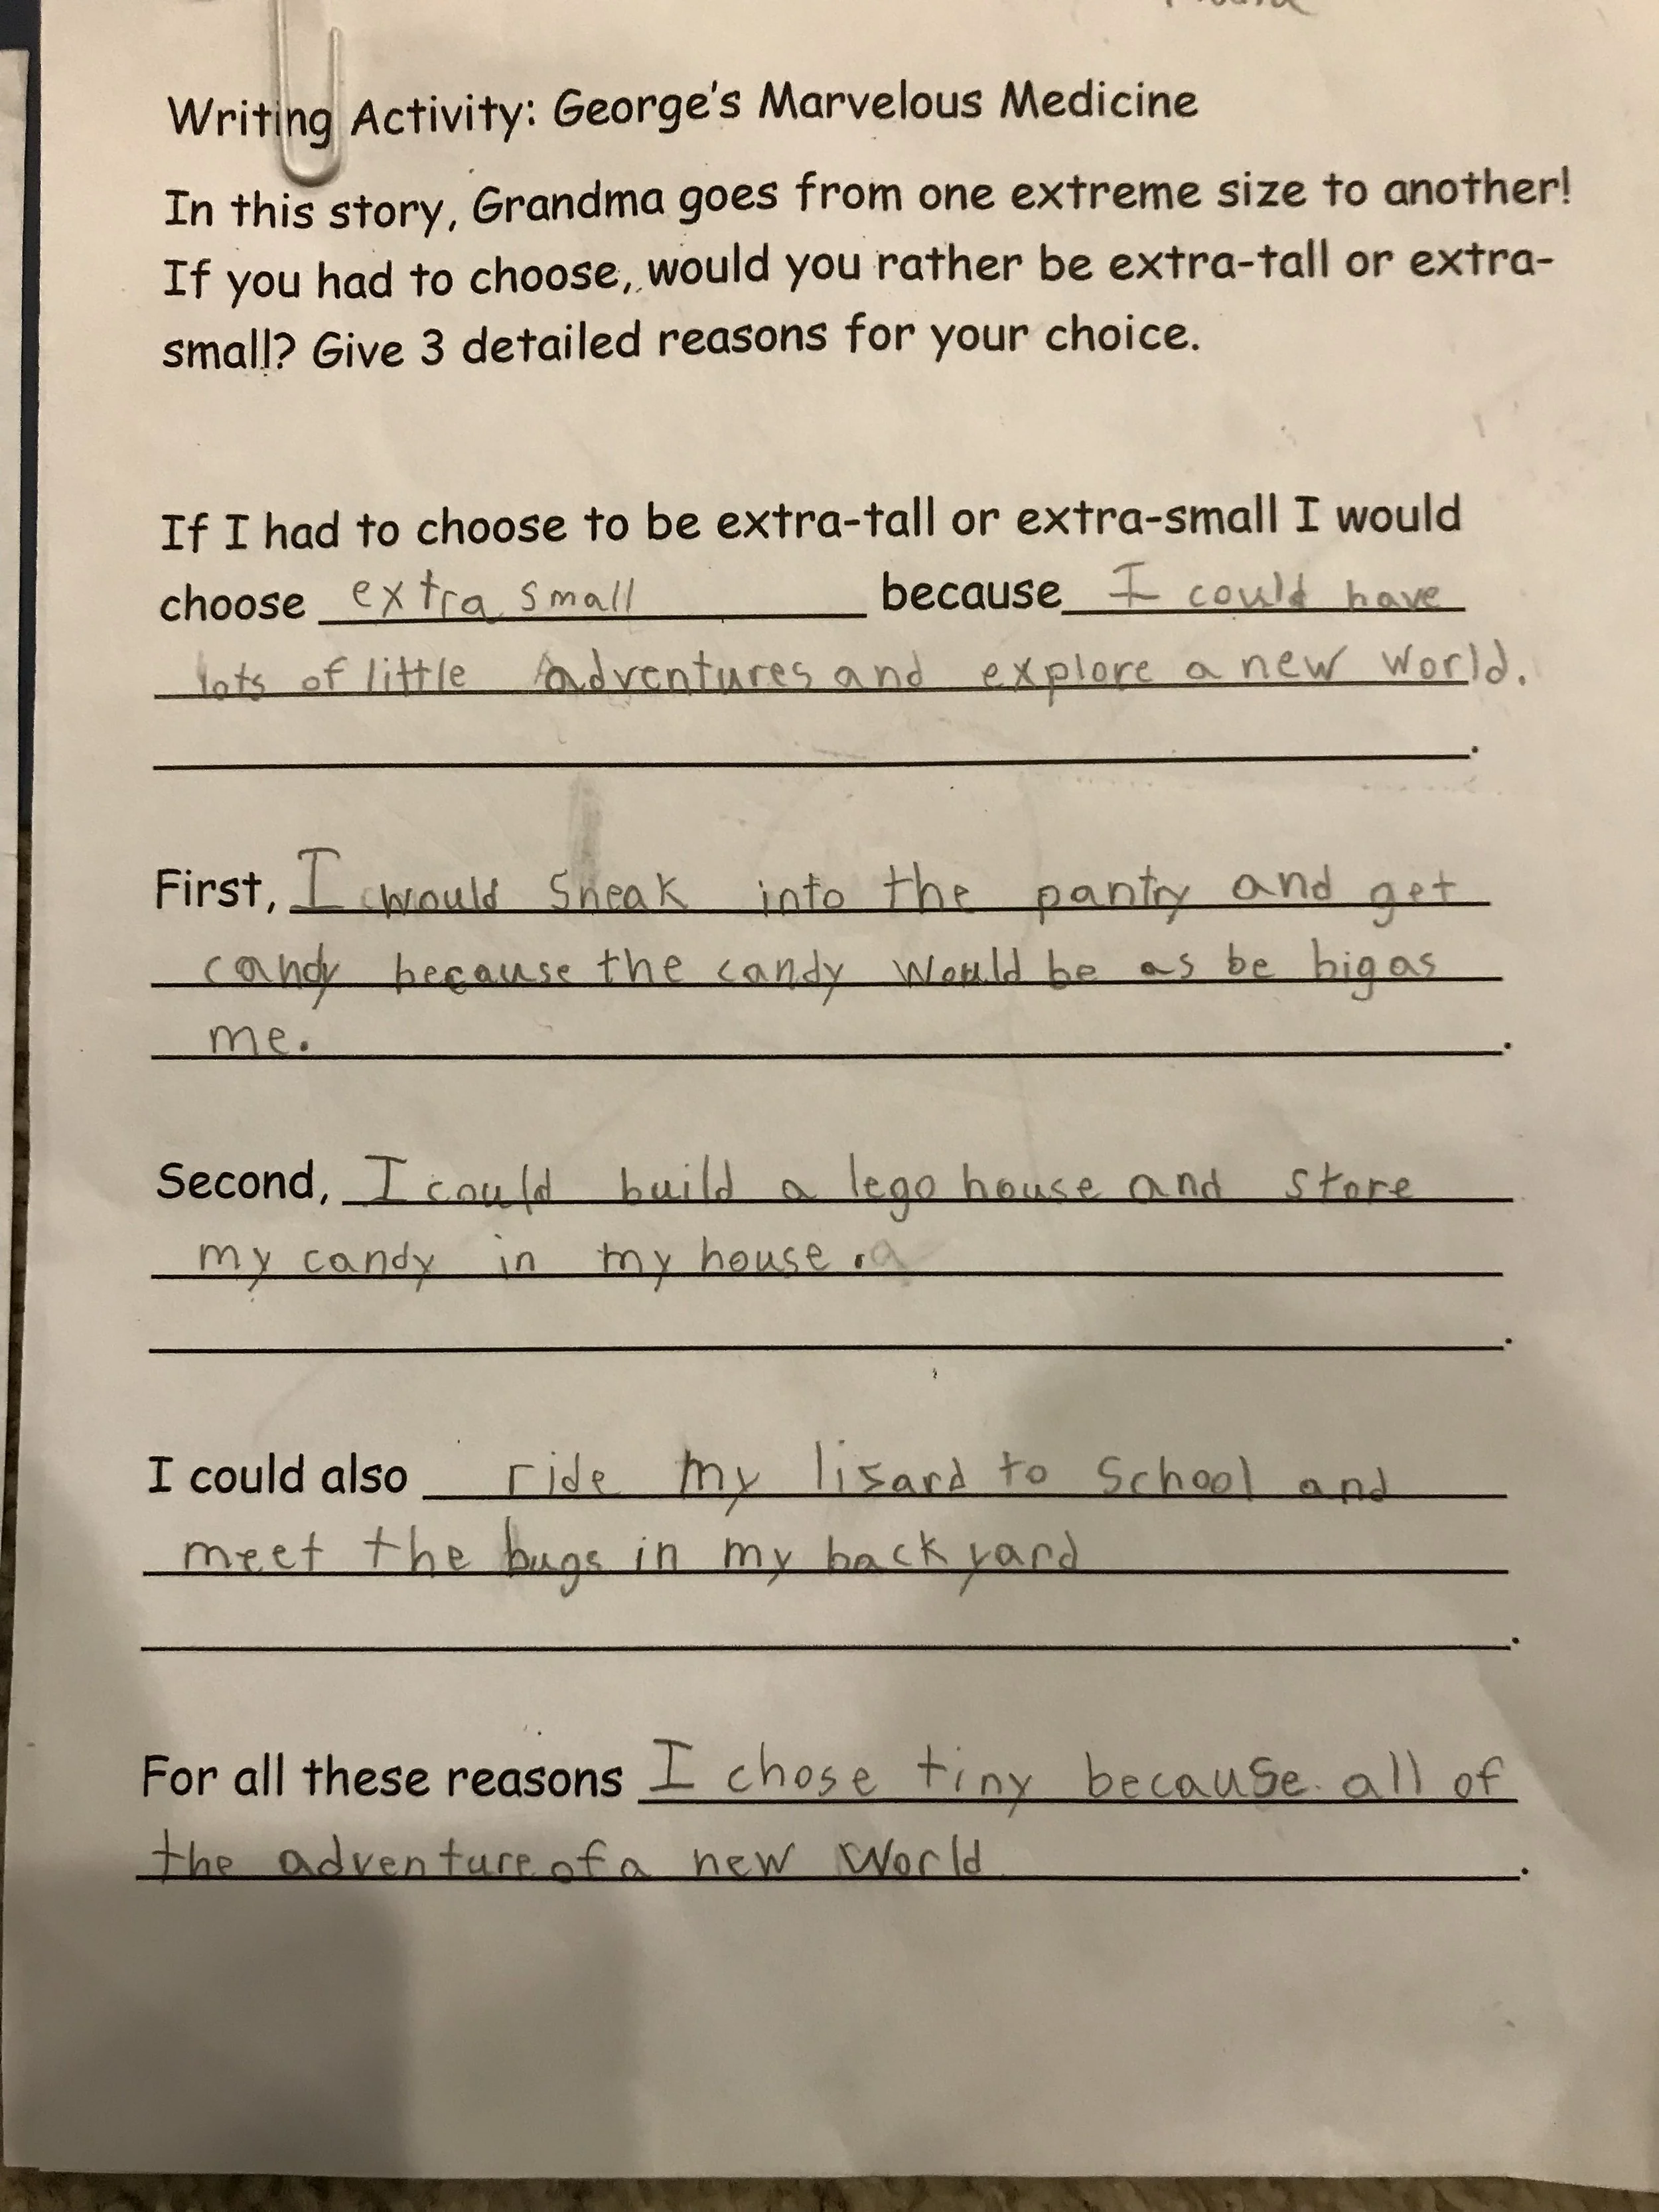 Writing Activity: George's Marvelous Medicine
In this story, Grandma goes from one extreme size to another!
If you had to choose, would you rather be extra-tall or extra-
small? Give 3 detailed reasons for your choice.
If I had to choose to be extra-tall or extra-small I would
choose extra small because I could have
lots of little adventures and explore a new world.
.
First, I would sneak into the pantry and get
candy because the candy would be as be big as
me. .
Second, I could build a lego house and store
my candy in my house.
.
I could also ride my lisard to school and
meet the bugs in my back yard
.
For all these reasons I chose tiny because all of
the adventure of a new world .